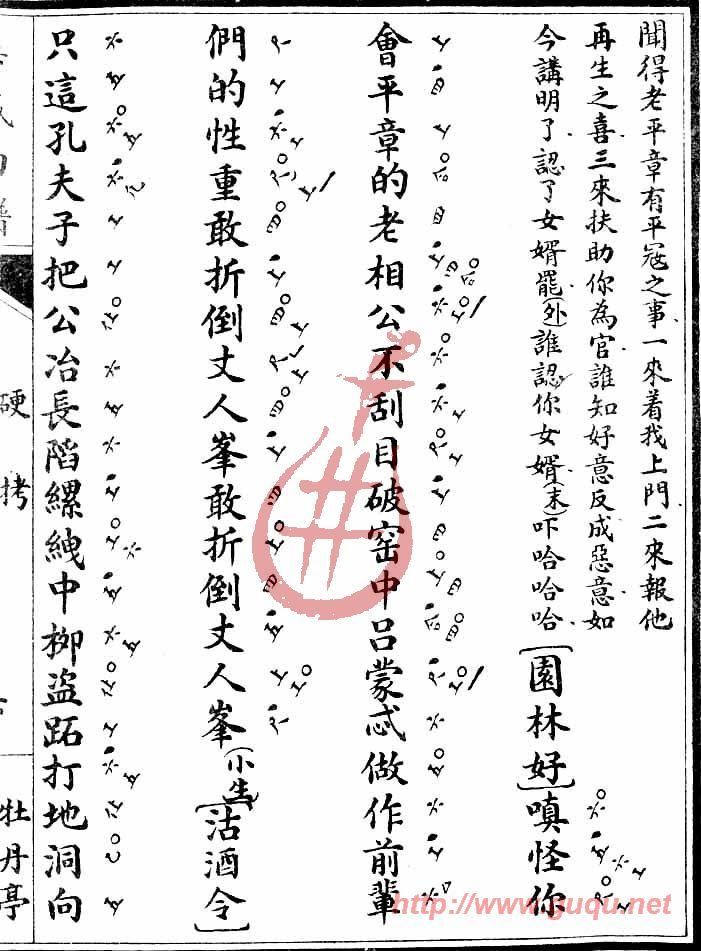 聞得老平章有平寇之事一來着我上門二來報他
再生之喜三來扶助你為官誰知好意反成惡意如
今講明了認了女婿罷(外)誰認你女婿(末)吓哈哈哈
[園林好]嗔怪你
會平章的老相公不刮目破窑中呂蒙忒做作前輩
們的性重敢折倒丈人峯敢折倒丈人峯(小生)[沽酒令]
只這孔夫子把公冶長陷縲絏中柳盜跖打地洞向
硬拷
牡丹亭
http://www.guqu.net